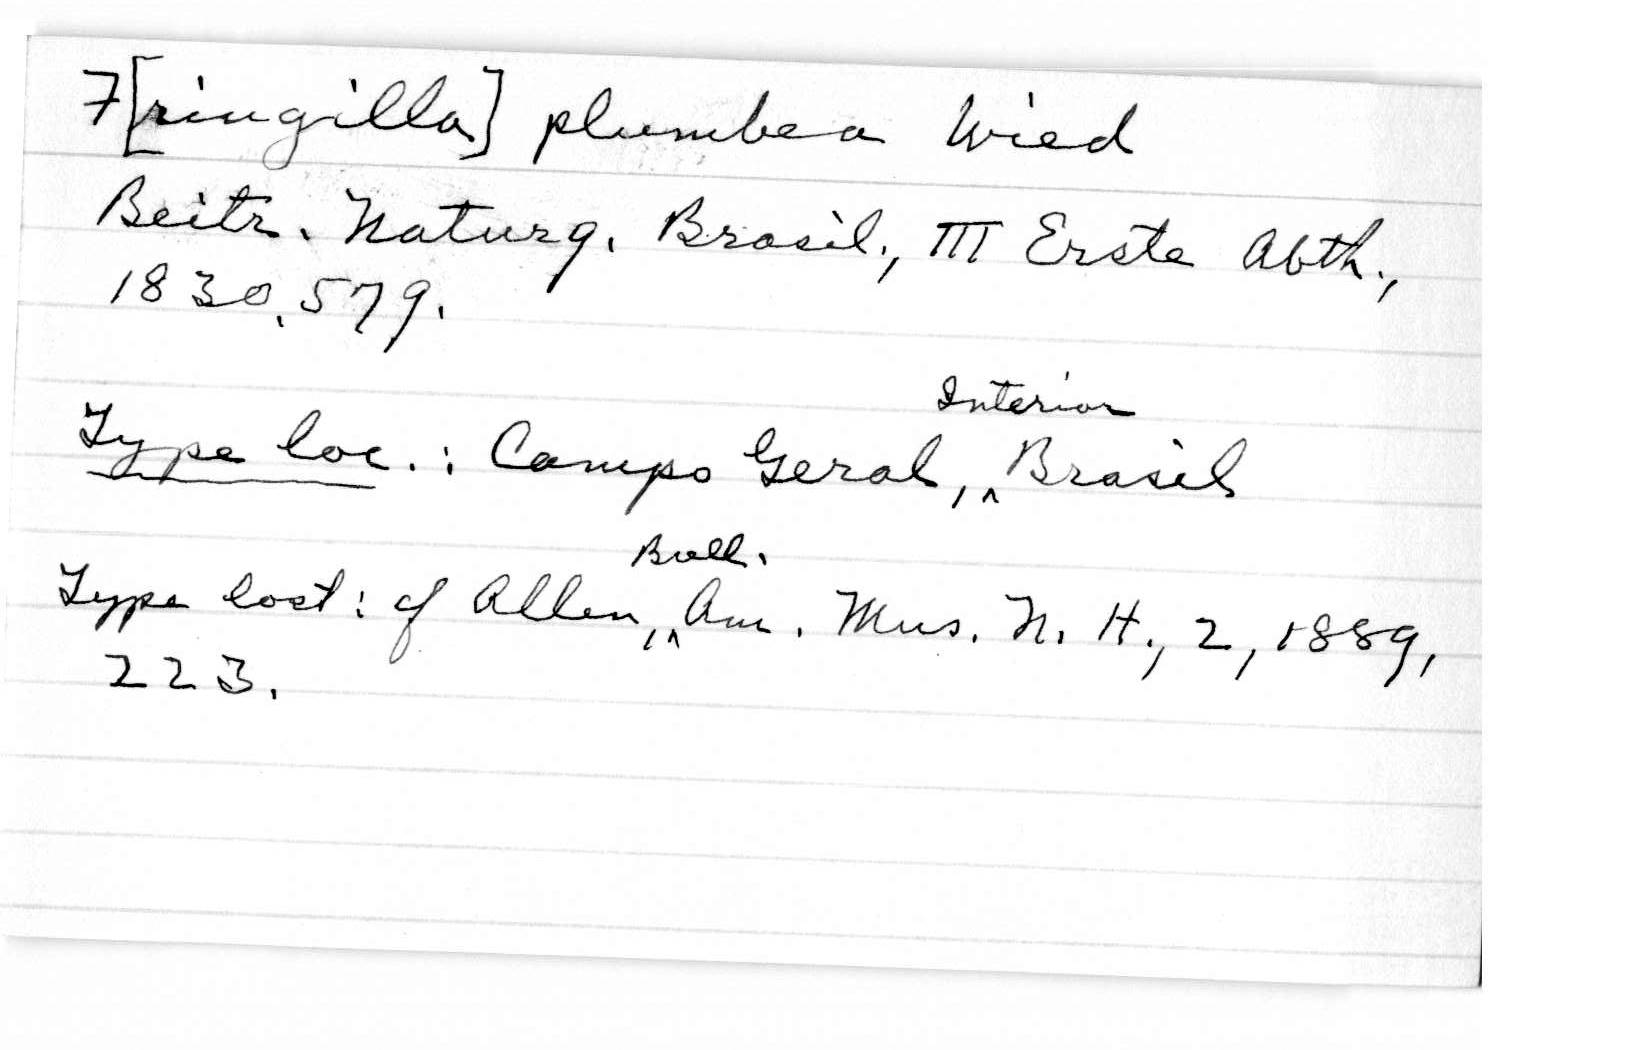 F[ringilla] plumbea Wied
Beitr. Naturg. Brasil., III Erste Abth.,
1830, 579.
Interior
Type loc.: Campo Geral, ^ Brasil
Bull.
Type lost: cf Allen, ^ Am. Mus. N. H., 2, 1889,
223.